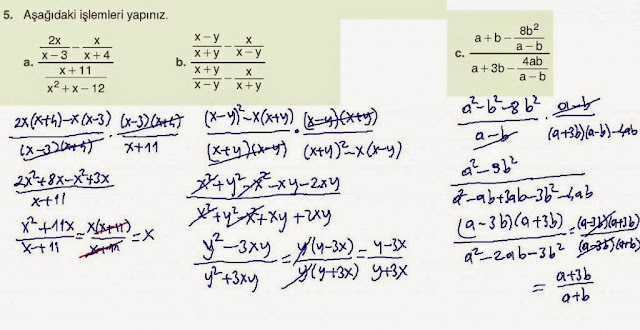 5. Aşağıdaki işlemleri yapınız.
a. (2x/(x−3) − x/(x+4)) / ((x+11)/(x²+x−12))
b. ((x−y)/(x+y) − x/(x−y)) / ((x+y)/(x−y) − x/(x+y))
c. (a+b − 8b²/(a−b)) / (a+3b − 4ab/(a−b))
(2x(x+4)−x(x−3))/((x−3)(x+4)) · ((x−3)(x+4))/(x+11)
(2x²+8x−x²+3x)/(x+11)
(x²+11x)/(x+11) = (x(x+11))/(x+11) = x
((x−y)²−x(x+y))/((x+y)(x−y)) · ((x−y)(x+y))/((x+y)²−x(x−y))
(x²+y²−x²−xy−2xy)/(x²+y²−x²+xy+2xy)
(y²−3xy)/(y²+3xy) = (y(y−3x))/(y(y+3x)) = (y−3x)/(y+3x)
(a²−b²−8b²)/(a−b) · (a−b)/((a+3b)(a−b)−4ab)
(a²−9b²)/(a²−ab+3ab−3b²−4ab)
((a−3b)(a+3b))/(a²−2ab−3b²) = ((a−3b)(a+3b))/((a−3b)(a+b))
= (a+3b)/(a+b)